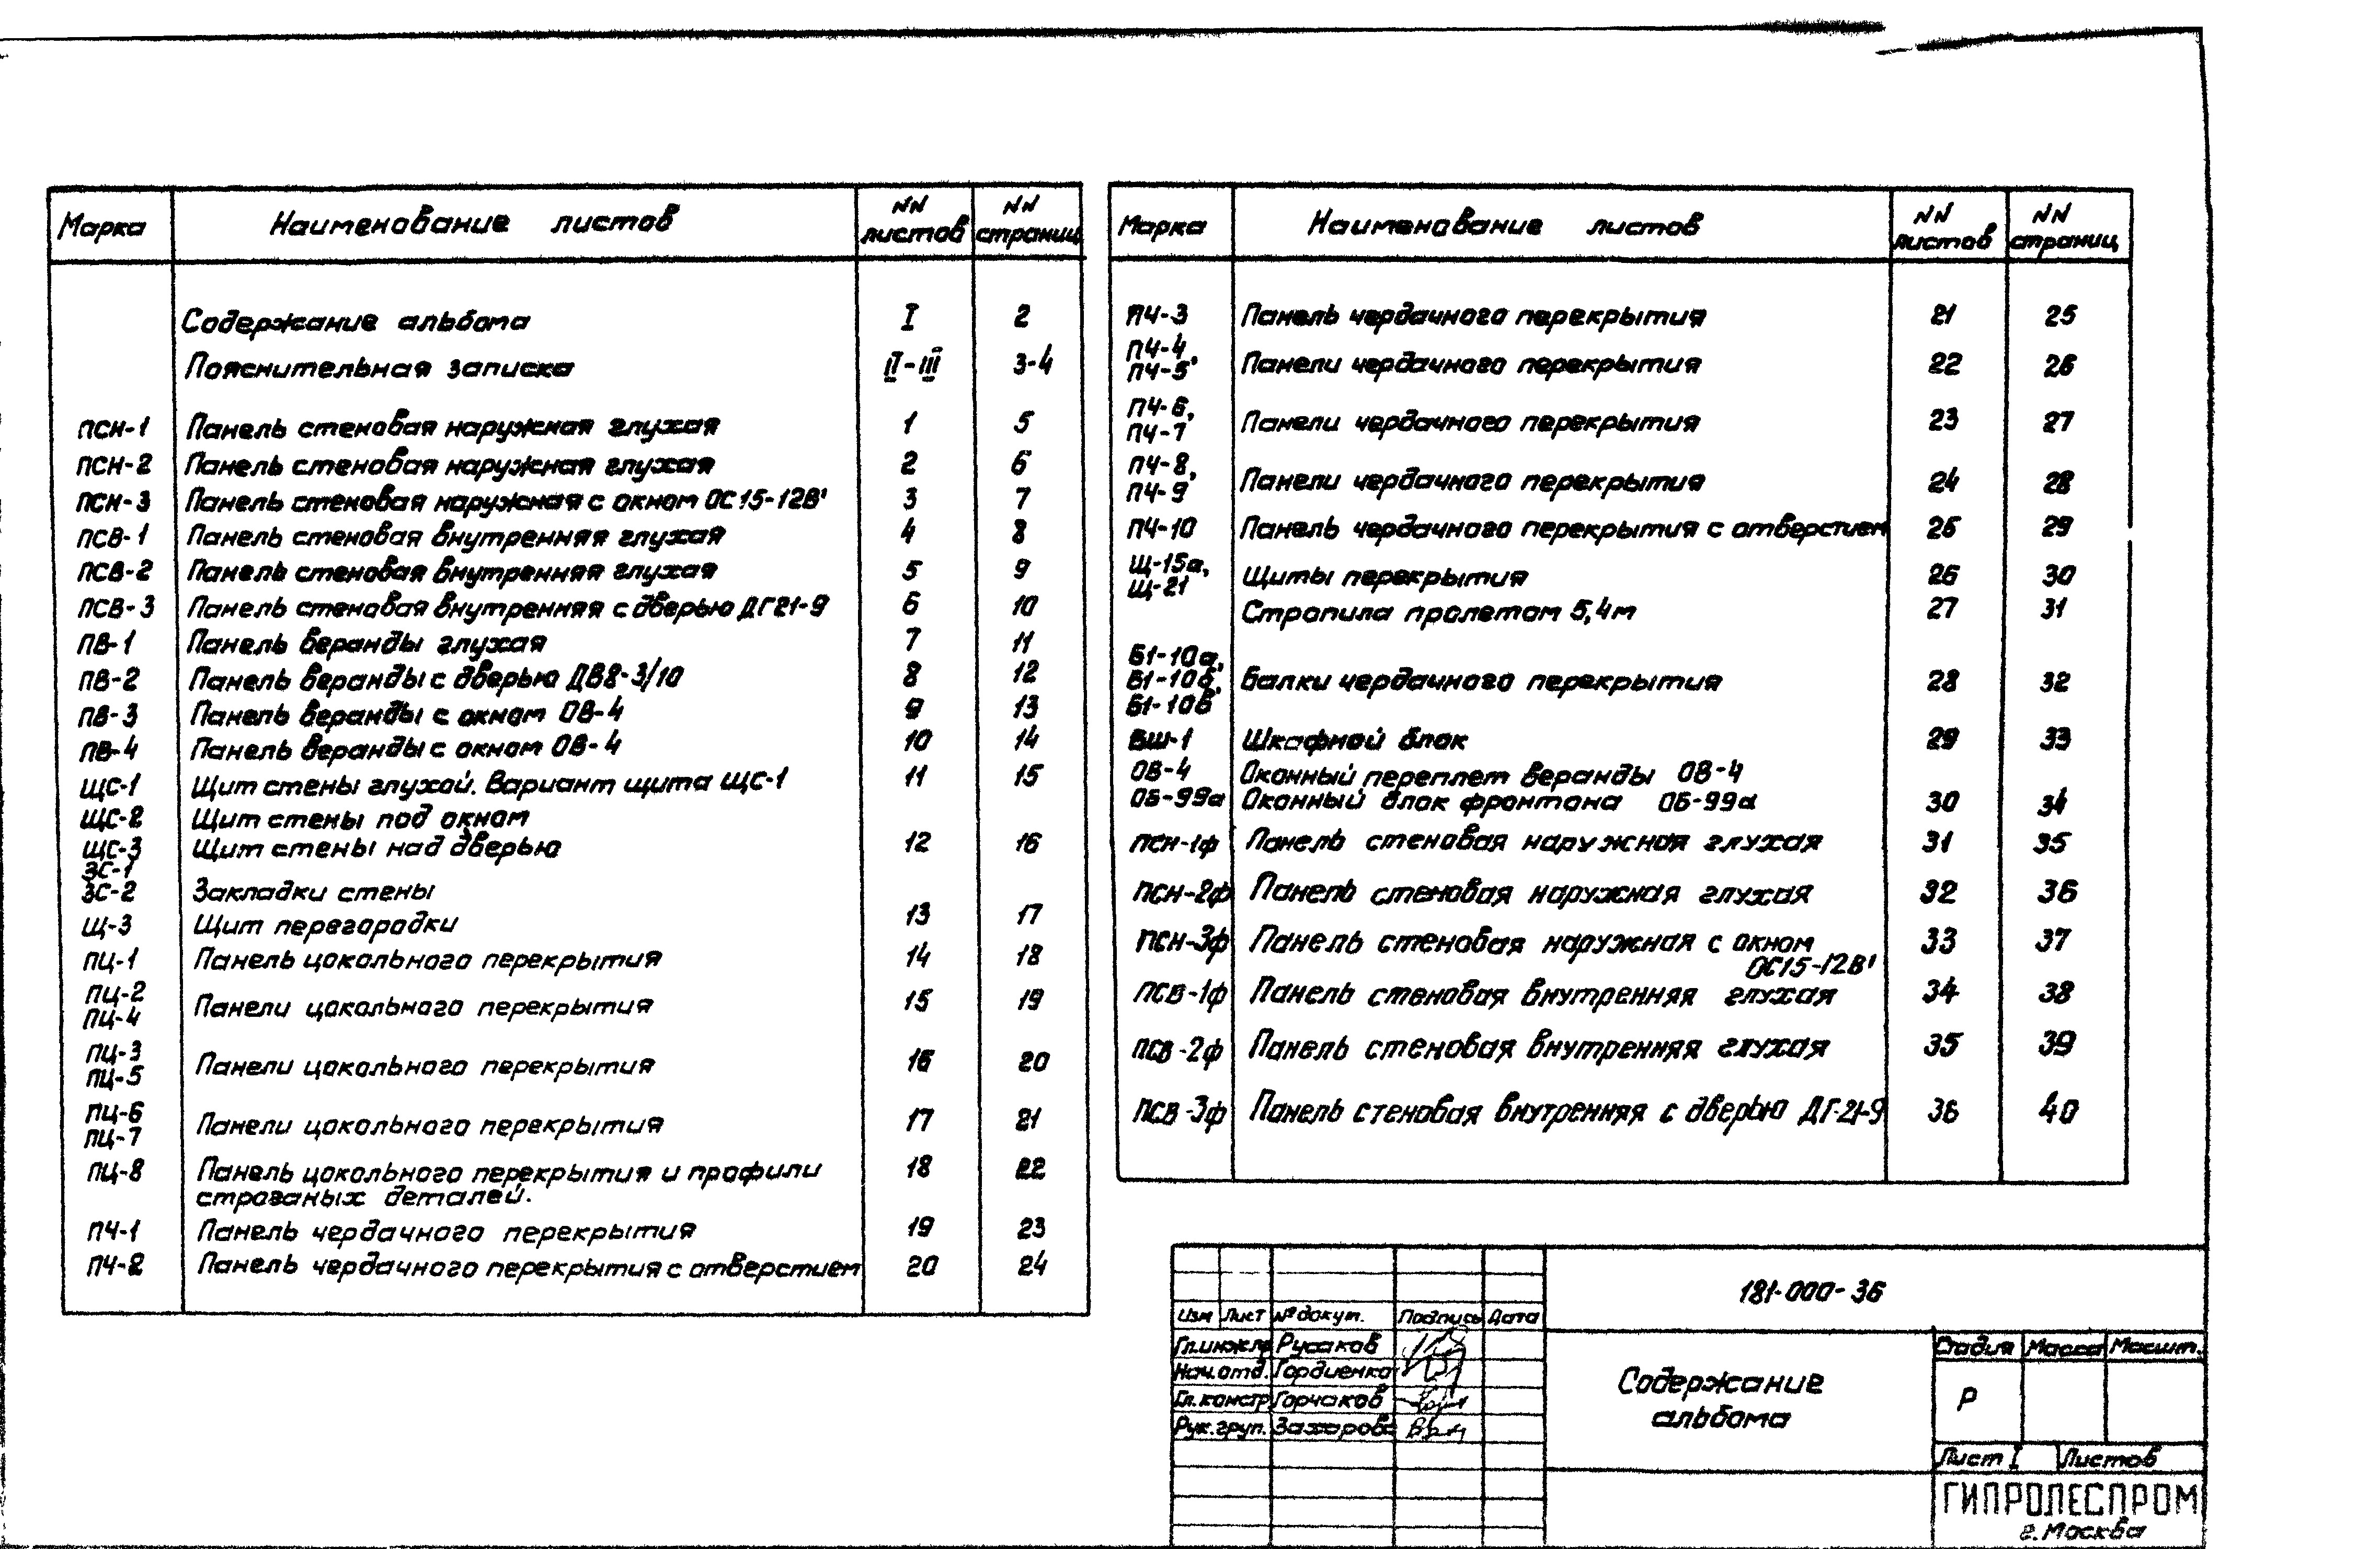 Марка Наименование листов NN листов NN страниц
Содержание альбома I 2
Пояснительная записка II-III 3-4
ПСН-1 Панель стеновая наружная глухая 1 5
ПСН-2 Панель стеновая наружная глухая 2 6
ПСН-3 Панель стеновая наружная с окном ОС15-12В' 3 7
ПСВ-1 Панель стеновая внутренняя глухая 4 8
ПСВ-2 Панель стеновая внутренняя глухая 5 9
ПСВ-3 Панель стеновая внутренняя с дверью ДГ21-9 6 10
ПВ-1 Панель веранды глухая 7 11
ПВ-2 Панель веранды с дверью ДВ8-3/10 8 12
ПВ-3 Панель веранды с окном ОВ-4 9 13
ПВ-4 Панель веранды с окном ОВ-4 10 14
ЩС-1 Щит стены глухой. Вариант щита ЩС-1 11 15
ЩС-2 Щит стены под окном
ЩС-3 Щит стены над дверью 12 16
ЗС-1
ЗС-2 Закладки стены
Щ-3 Щит перегородки 13 17
ПЦ-1 Панель цокольного перекрытия 14 18
ПЦ-2
ПЦ-4 Панели цокольного перекрытия 15 19
ПЦ-3
ПЦ-5 Панели цокольного перекрытия 16 20
ПЦ-6
ПЦ-7 Панели цокольного перекрытия 17 21
ПЦ-8 Панель цокольного перекрытия и профили 18 22
строганых деталей.
ПЧ-1 Панель чердачного перекрытия 19 23
ПЧ-2 Панель чердачного перекрытия с отверстием 20 24
Марка Наименование листов NN листов NN страниц
ПЧ-3 Панель чердачного перекрытия 21 25
ПЧ-4,
ПЧ-5 Панели чердачного перекрытия 22 26
ПЧ-6,
ПЧ-7 Панели чердачного перекрытия 23 27
ПЧ-8,
ПЧ-9 Панели чердачного перекрытия 24 28
ПЧ-10 Панель чердачного перекрытия с отверстием 25 29
Щ-15а,
Щ-21 Щиты перекрытия 26 30
Стропила пролетом 5,4м 27 31
Б1-10а,
Б1-10б, Балки чердачного перекрытия 28 32
Б1-10в
БШ-1 Шкафной блок 29 33
ОВ-4 Оконный переплет веранды ОВ-4
ОБ-99а Оконный блок фронтона ОБ-99а 30 34
ПСН-1ф Панель стеновая наружная глухая 31 35
ПСН-2ф Панель стеновая наружная глухая 32 36
ПСН-3ф Панель стеновая наружная с окном 33 37
ОС15-12В'
ПСВ-1ф Панель стеновая внутренняя глухая 34 38
ПСВ-2ф Панель стеновая внутренняя глухая 35 39
ПСВ-3ф Панель стеновая внутренняя с дверью ДГ-21-9 36 40
181-000-36
Изм Лист № докум. Подпись Дата
Гл.инж.пр Русаков
Нач.отд. Гордиенко
Гл.констр Горчаков
Рук.груп. Захарова
Содержание
альбома
Стадия Масса Масшт.
Р
Лист I Листов
ГИПРОЛЕСПРОМ
г. Москва